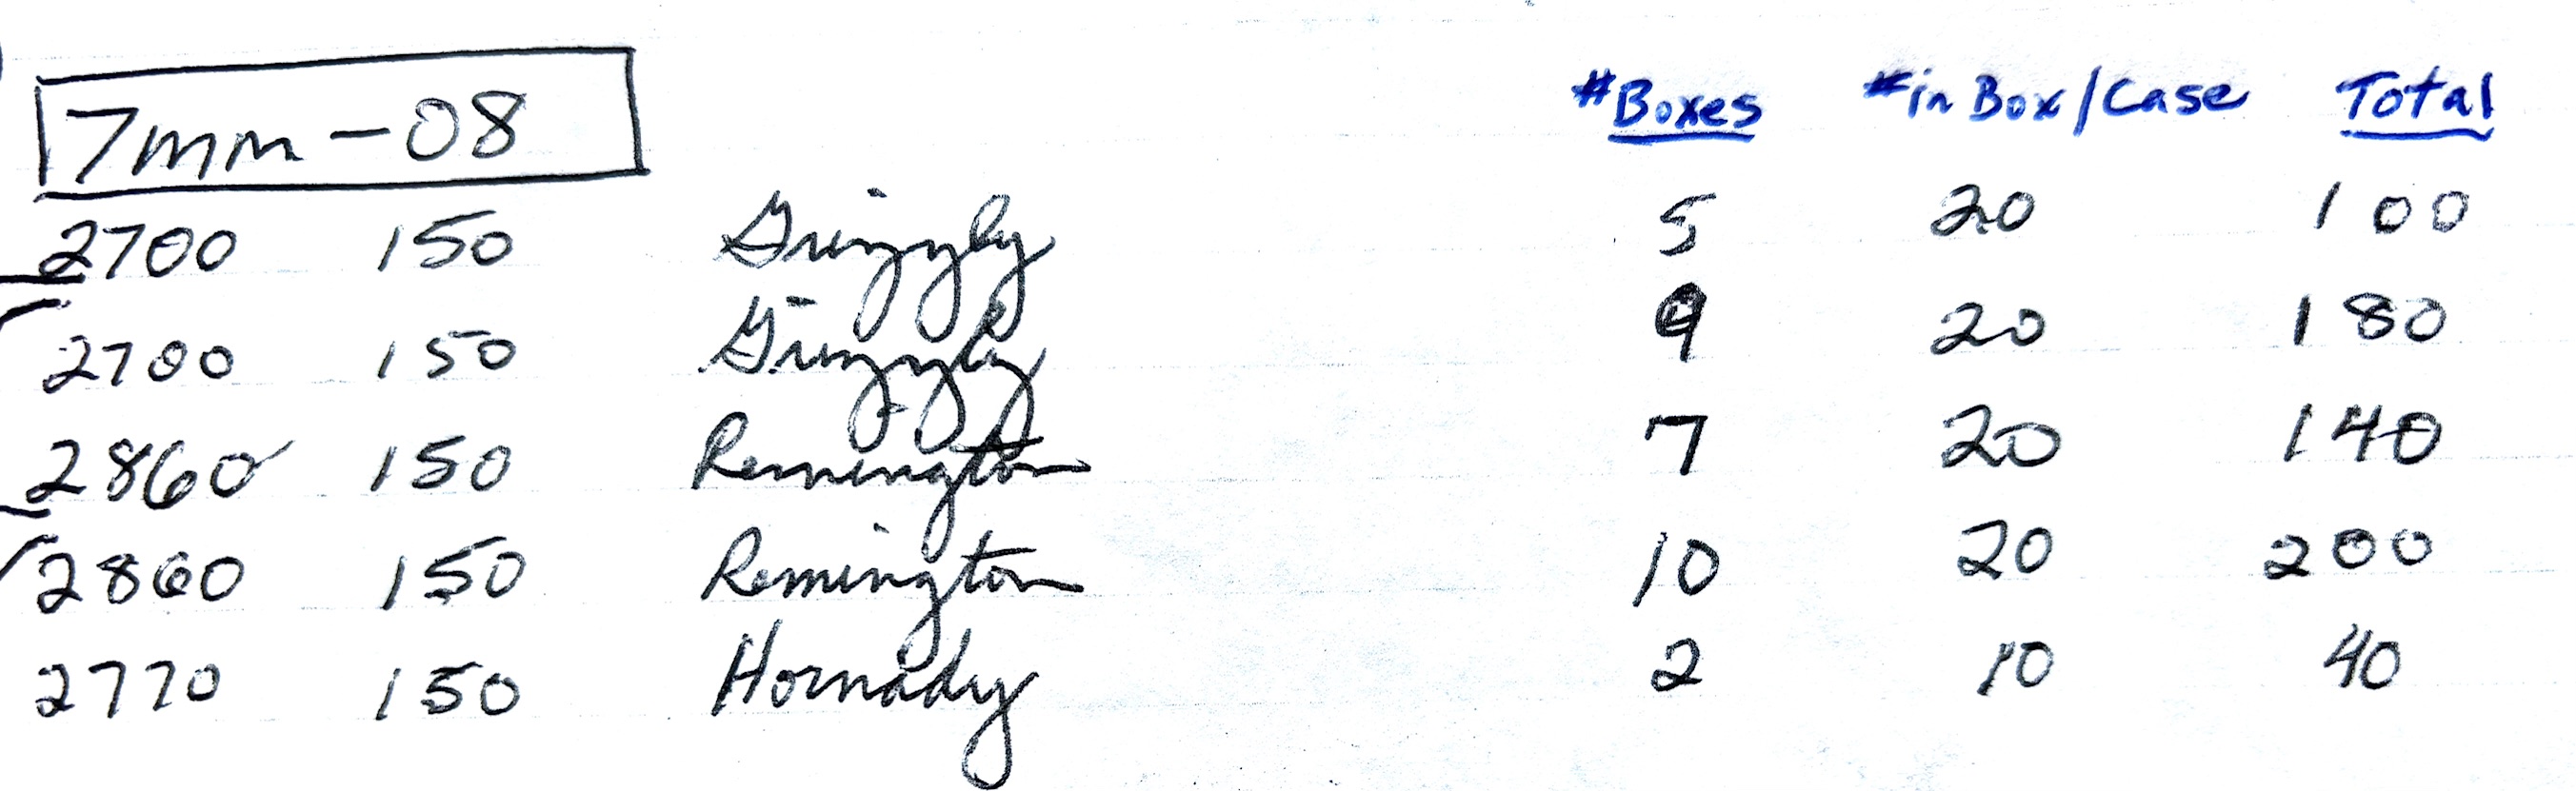 7mm-08 #Boxes #in Box/Case Total
2700 150 Grizzly 5 20 100
2700 150 Grizzly 9 20 180
2860 150 Remington 7 20 140
2860 150 Remington 10 20 200
2770 150 Hornady 2 10 40